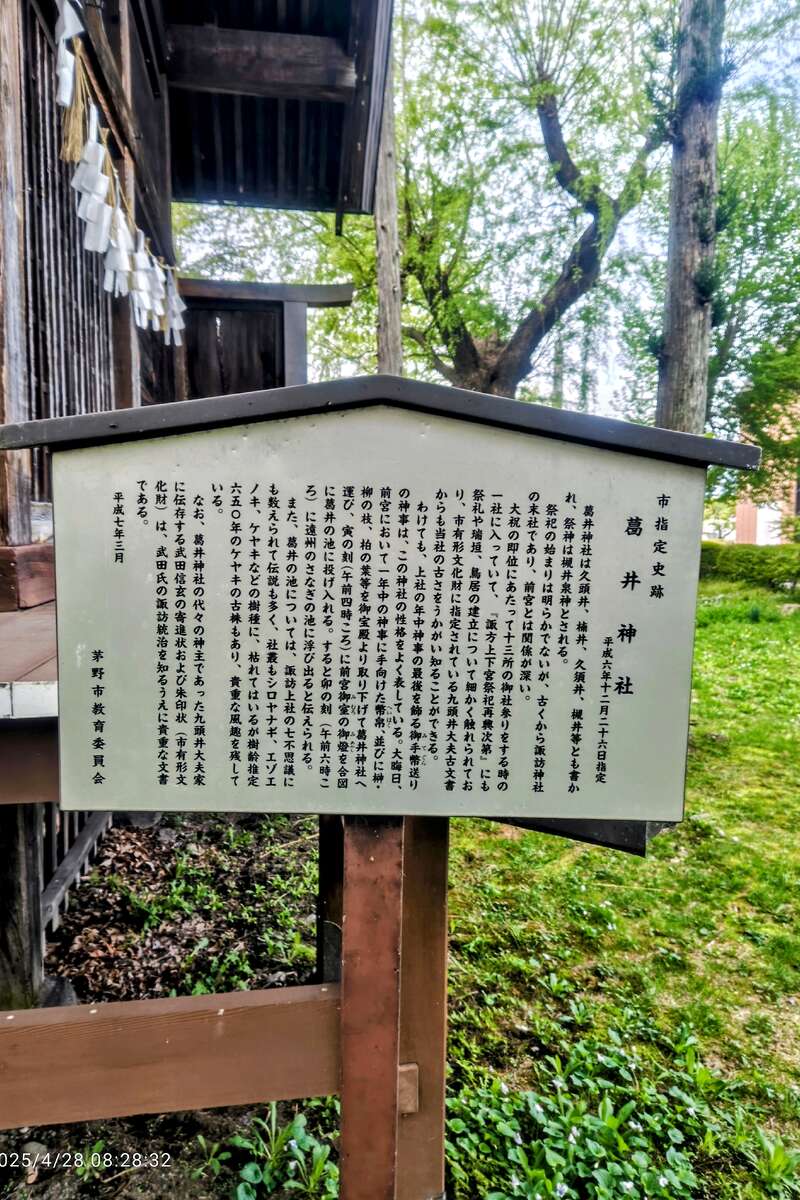 市指定史跡
葛井神社
平成六年十二月二十六日指定
葛井神社は久頭井、楠井、久須井、槻井等とも書か
れ、祭神は槻井泉神とされる。
祭祀の始まりは明らかでないが、古くから諏訪神社
の末社であり、前宮とは関係が深い。
大祝の即位にあたって十三所の御社参りをする時の
一社に入っていて、『諏方上下宮祭祀再興次第』にも
祭礼や瑞垣、鳥居の建立について細かく触れられてお
り、市有形文化財に指定されている九頭井大夫古文書
からも当社の古さをうかがい知ることができる。
わけても、上社の年中神事の最後を飾る御手幣送り
の神事は、この神社の性格をよく表している。大晦日、
前宮において一年中の神事に手向けた幣帛、並びに榊・
柳の枝、柏の葉等を御宝殿より取り下げて葛井神社へ
運び、寅の刻(午前四時ころ)に前宮御室の御燈を合図
に葛井の池に投げ入れる。すると卯の刻(午前六時こ
ろ)に遠州のさなぎの池に浮び出ると伝えられる。
また、葛井の池については、諏訪上社の七不思議に
も数えられて伝説も多く、社叢もシロヤナギ、エゾエ
ノキ、ケヤキなどの樹種に、枯れてはいるが樹齢推定
六五〇年のケヤキの古株もあり、貴重な風趣を残して
いる。
なお、葛井神社の代々の神主であった九頭井大夫家
に伝存する武田信玄の寄進状および朱印状(市有形文
化財)は、武田氏の諏訪統治を知るうえに貴重な文書
である。
平成七年三月
茅野市教育委員会
025/4/28 08:28:32